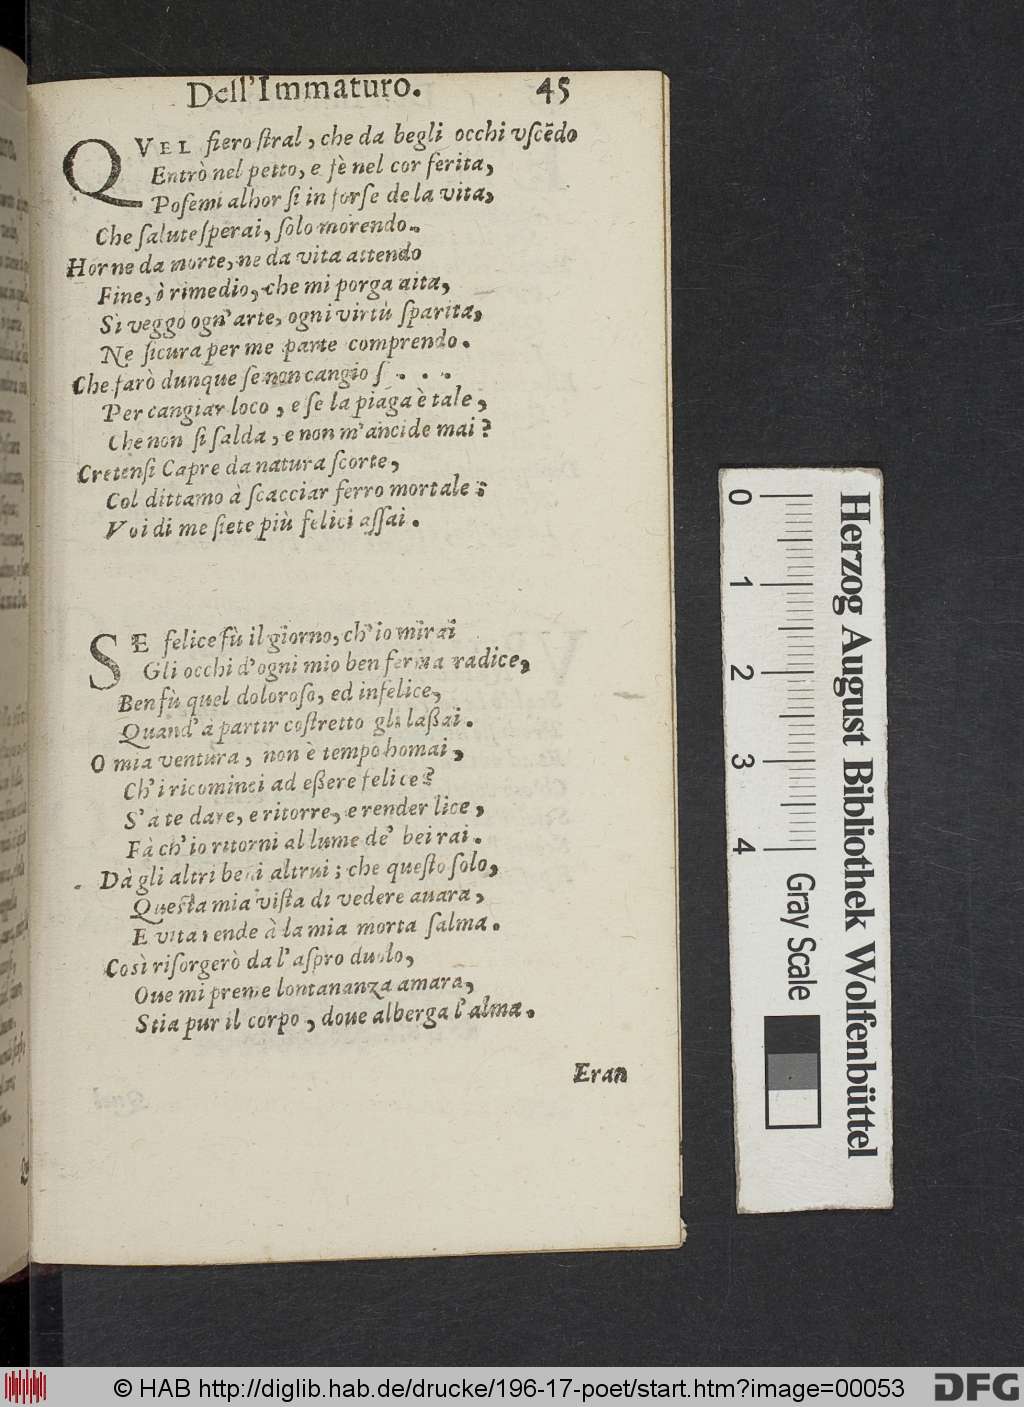 Dell'Immaturo. 45
QVEL fiero ſtral, che da begli occhi vſcẽdo
Entrò nel petto, e fè nel cor ferita,
Poſemi alhor ſi in forſe de la vita,
Che ſalute ſperai, ſolo morendo.
Hor ne da morte, ne da vita attendo
Fine, ò rimedio, che mi porga aita,
Sì veggo ogn'arte, ogni virtù ſparita,
Ne ſicura per me parte comprendo.
Che farò dunque ſe non cangio ſ . . .
Per cangiar loco, e ſe la piaga è tale,
Che non ſi ſalda, e non m'ancide mai?
Cretenſi Capre da natura ſcorte,
Col dittamo à ſcacciar ferro mortale;
Voi di me ſiete più felici aſſai.
SE felice fù il giorno, ch'io mirai
Gli occhi d'ogni mio ben ferma radice,
Ben fù quel doloroſo, ed infelice,
Quand' à partir coſtretto gli laßai.
O mia ventura, non è tempo homai,
Ch'i ricominci ad eßere felice?
S' à te dare, e ritorre, e render lice,
Fà ch'io ritorni al lume de' bei rai.
Dà gli altri beni altrui; che queſto ſolo,
Queſta mia viſta di vedere auara,
E vita rende à la mia morta ſalma.
Così riſorgerò da l'aſpro duolo,
Oue mi preme lontananza amara,
Stia pur il corpo, doue alberga l'alma.
Eran
0 1 2 3 4
Gray Scale
Herzog August Bibliothek Wolfenbüttel
© HAB http://diglib.hab.de/drucke/196-17-poet/start.htm?image=00053
DFG